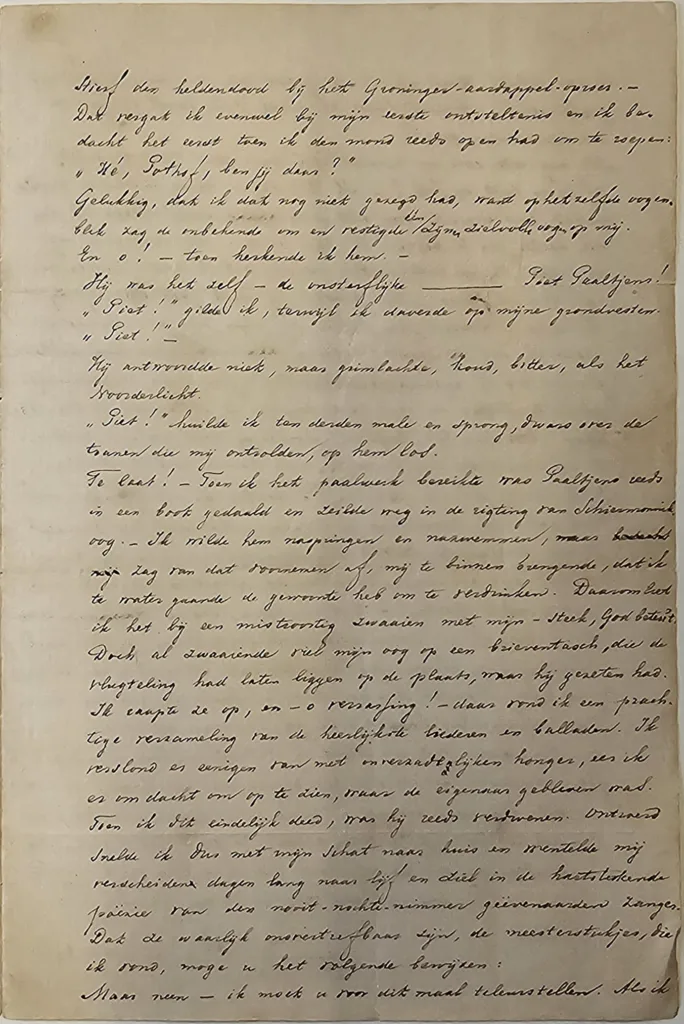 Stierf den heldendood bij het Groninger-aardappel-oproer. —
Dat vergat ik evenwel bij mijn eerste ontsteltenis en ik be-
dacht het eerst toen ik den mond reeds open had om te roepen:
„Hé, Pothof, ben jij daar?"
Gelukkig, dat ik dat nog niet gezegd had, want op het zelfde oogen-
blik zag de onbekende om en vestigde een zijner zielvolle oogen op mij.
En o! — toen herkende ik hem. —
Hij was het zelf — de onsterflijke ——— Piet Paaltjens!
„Piet!" gilde ik, terwijl ik daverde op mijne grondvesten.
„Piet!" —
Hij antwoordde niet, maar grimlachte, koud, bitter, als het
Noorderlicht.
„Piet!" huilde ik ten derden male en sprong, dwars over de
tranen die mij ontrolden, op hem los.
Te laat! — Toen ik het paalwerk bereikte was Paaltjens reeds
in een boot gedaald en zeilde weg in de rigting van Schiermonnik-
oog. — Ik wilde hem naspringen en nazwemmen, maar
zag van dat voornemen af, mij te binnen brengende, dat ik
te water gaande de gewoonte heb om te verdrinken. Daarom liet
ik het bij een mistroostig zwaaien met mijn — steek, God betert.
Doch al zwaaiende viel mijn oog op een brieventasch, die de
vlugteling had laten liggen op de plaats, waar hij gezeten had.
Ik raapte ze op, en — o verrassing! — daar vond ik een prach-
tige verzameling van de heerlijkste liederen en balladen. Ik
verslond er eenigen van met onverzadelijken honger, eer ik
er om dacht om op te zien, waar de eigenaar gebleven was.
Toen ik dit eindelijk deed, was hij reeds verdwenen. Ontroerd
snelde ik dus met mijn schat naar huis en wentelde mij
verscheidene dagen lang naar lijf en ziel in de hartstikkende
poëzie van den nooit-nochte-nimmer geëvenaarden zanger.
Dat ze waarlijk onovertrefbaar zijn, de meesterstukjes, die
ik vond, moge u het volgende bewijzen:
Maar neen — ik moet u voor dit maal teleurstellen. Als ik